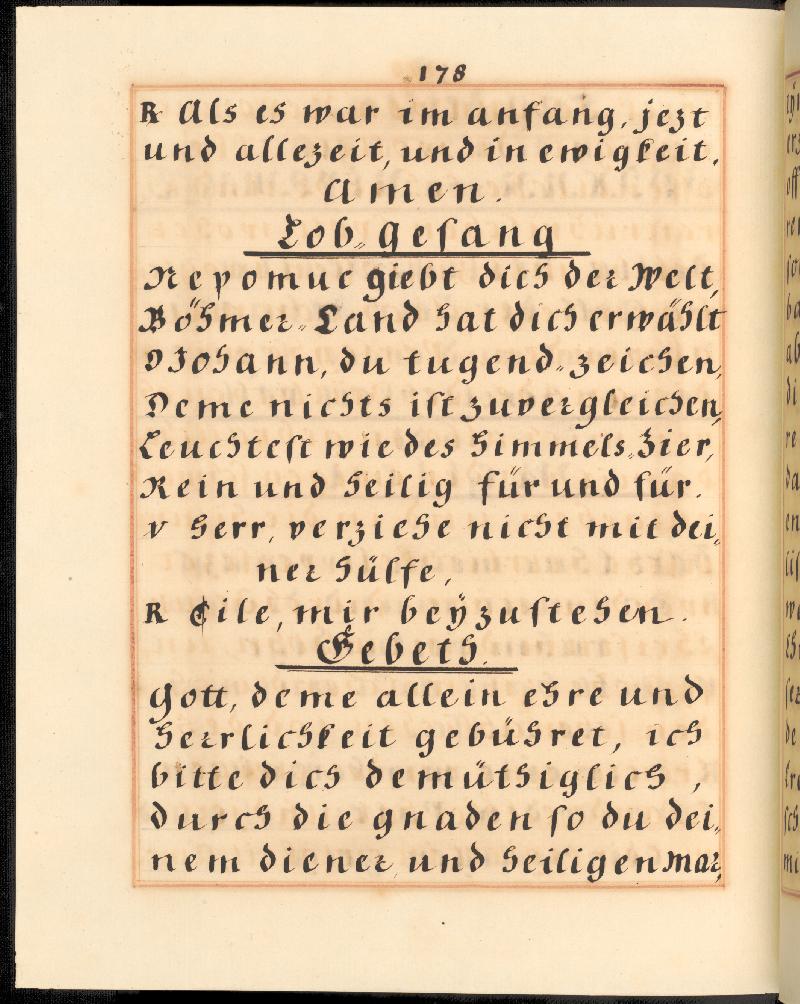 178
R Als es war im anfang, jezt
und allezeit, und in ewigkeit.
Amen.
Lob=Gesang
Nepomuc giebt dich der Welt,
Böhmer=Land hat dich erwählt
O Johann, du tugend=zeichen,
Deme nichts ist zuvergleichen,
Leuchtest wie des himmels=Zier,
Rein und heilig für und für.
V Herr, verziehe nicht mit dei=
ner hülfe,
R Eile, mir beÿzustehen.
Gebeth.
Gott, deme allein ehre und
herrlichkeit gebühret, ich
bitte dich demüthiglich,
durch die gnaden so du dei=
nem diener, und heiligen mar=